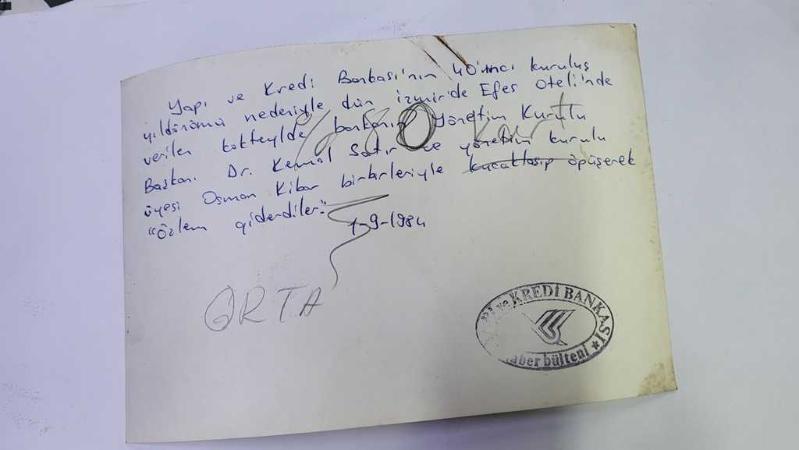 Yapı ve Kredi Bankası'nın 40'ıncı kuruluş
yıldönümü nedeniyle dün İzmir'de Efes Oteli'nde
verilen kokteylde bankanın Yönetim Kurulu
Başkanı Dr. Kemal Satır ve yönetim kurulu
üyesi Osman Kibar birbirleriyle kucaklaşıp öpüşerek
"özlem giderdiler."
1-9-1984
ORTA
ve KREDİ BANKASI
haber bülteni